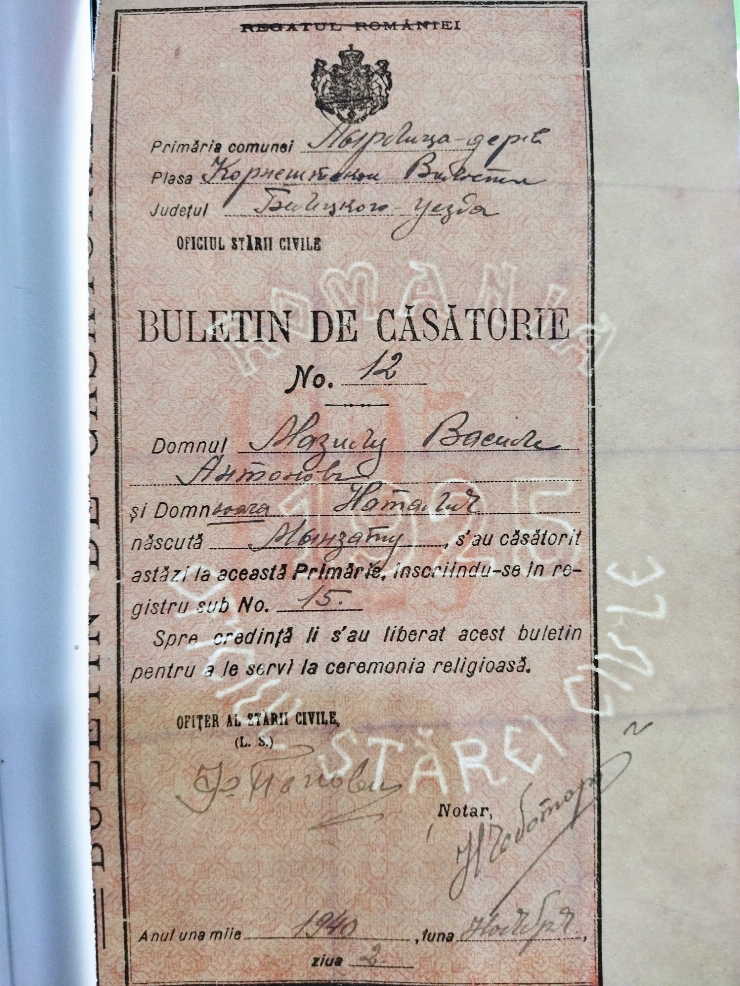 REGATUL ROMÂNIEI
Primăria comunei Пырлица-дерев
Plasa Корнештской Волости
Județul Бельцкого-уезда
OFICIUL STĂRII CIVILE
ROMÂNIA
BULETIN DE CĂSĂTORIE
No. 12
Domnul Мазилу Василе
Антонов
1925
și Domnșoara Наталия
născută Мынзату, s'au căsătorit
astăzi la această Primărie, inscriindu-se in re-
gistru sub No. 15.
Spre credință li s'au liberat acest buletin
pentru a le servi la ceremonia religioasă.
STĂREI CIVILE
OFIȚER AL STĂRII CIVILE,
(L. S.)
Notar,
Anul una mile 1940, luna Ноября,
ziua 2
BULETIN DE CĂSĂTORIE